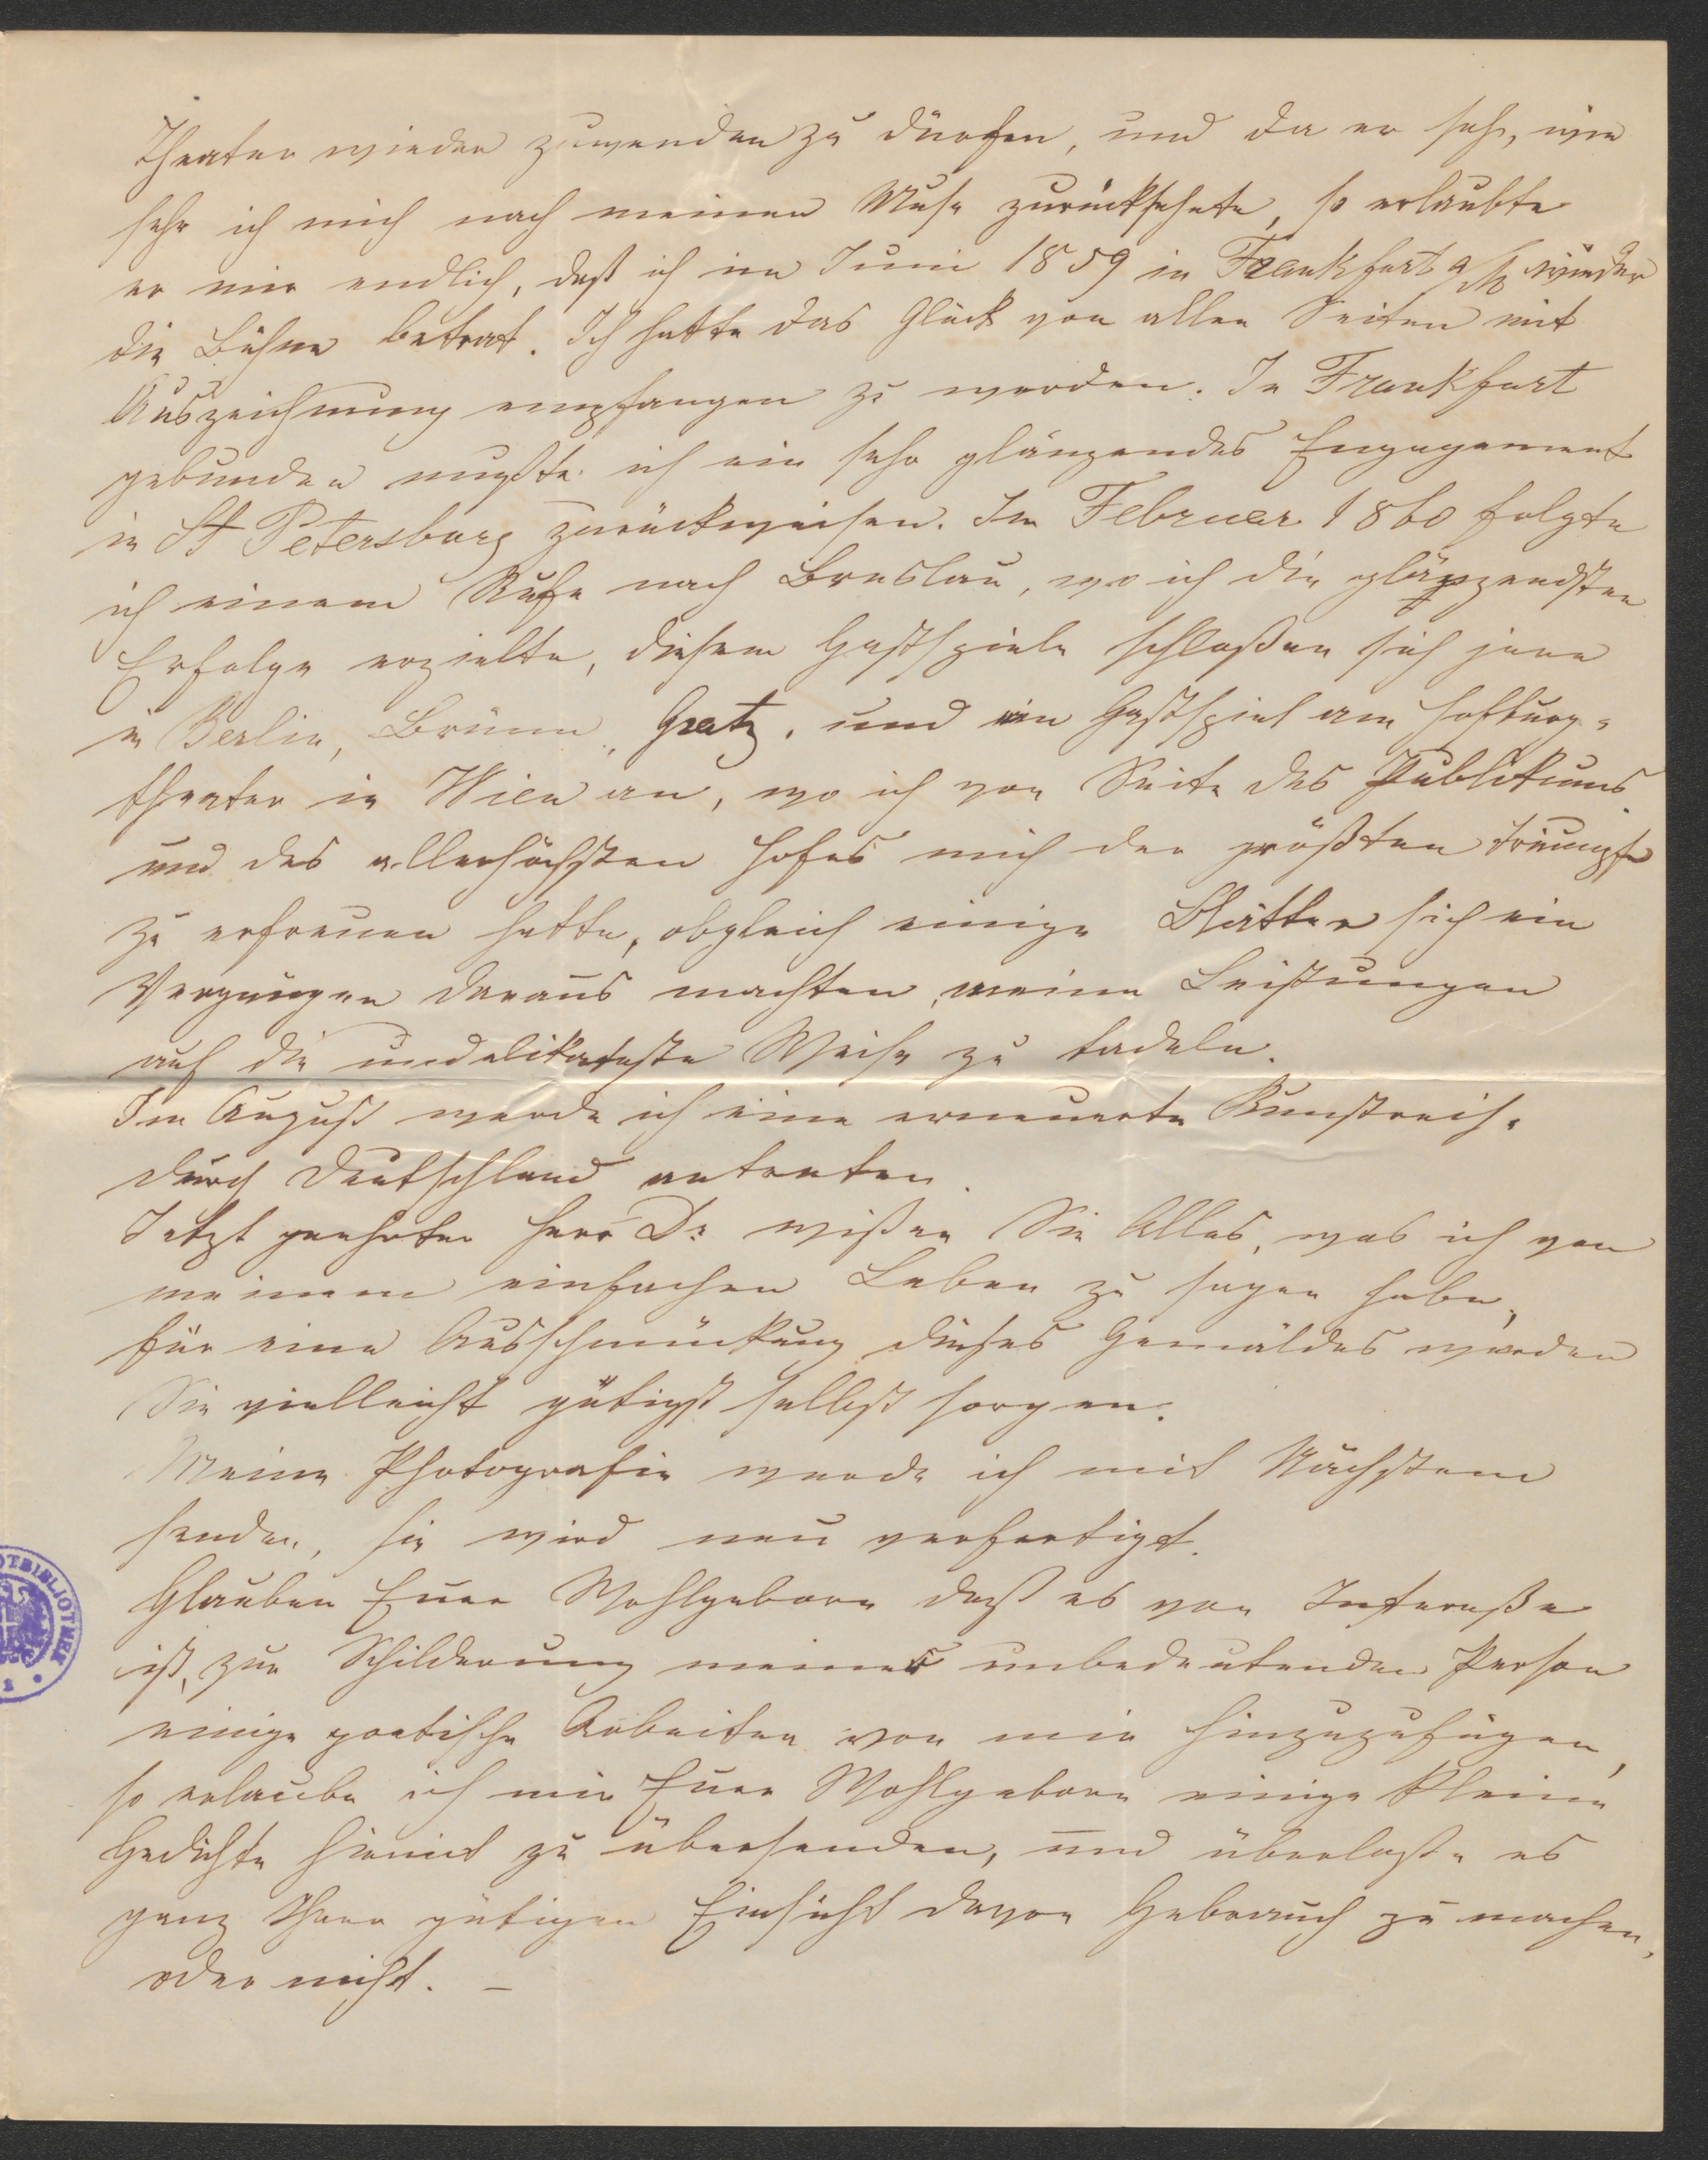 Theater wieder zuwenden zu dürfen, und da er sah, wie
sehr ich mich nach meiner Muse zurücksehnte, so erlaubte
er mir endlich, daß ich im Juni 1859 in Frankfurt a/M wieder
die Bühne betrat. Ich hatte das Glück von allen Seiten mit
Auszeichnung empfangen zu werden. In Frankfurt
gebunden mußte ich ein sehr glänzendes Engagement
in St Petersburg zurückweisen. Im Februar 1860 folgte
ich einem Rufe nach Breslau, wo ich die glänzendsten
Erfolge erzielte, diesem Gastspiele schloßen sich jene
in Berlin, Brünn, Gratz, und ein Gastspiel am Hofburg-
theater in Wien an, wo ich von Seite des Publikums
und des allerhöchsten Hofes mich der größten Triumpfe
zu erfreuen hatte, obgleich einige Blätter sich ein
Vergnügen daraus machten, meine Leistungen
auf die undelikateste Weise zu tadeln.
Im August werde ich eine erneuerte Kunstreise
durch Deutschland antreten.
Jetzt geehrter Herr Dr wißen Sie Alles, was ich von
meinem einfachen Leben zu sagen habe,
für eine Ausschmückung dieses Gemäldes werden
Sie vielleicht gütigst selbst sorgen.
Meine Photografie werde ich mit Nächstem
senden, sie wird neu verfertigt.
Glauben Euer Wohlgeborn daß es von Intereße
ist, zur Schilderung meiner unbedeutenden Person
einige poetische Arbeiten von mir hinzuzufügen,
so erlaube ich mir Euer Wohlgeborn einige kleine
Gedichte hiemit zu übersenden, und überlaße es
ganz Ihrer gütigen Einsicht davon Gebrauch zu machen,
oder nicht. –